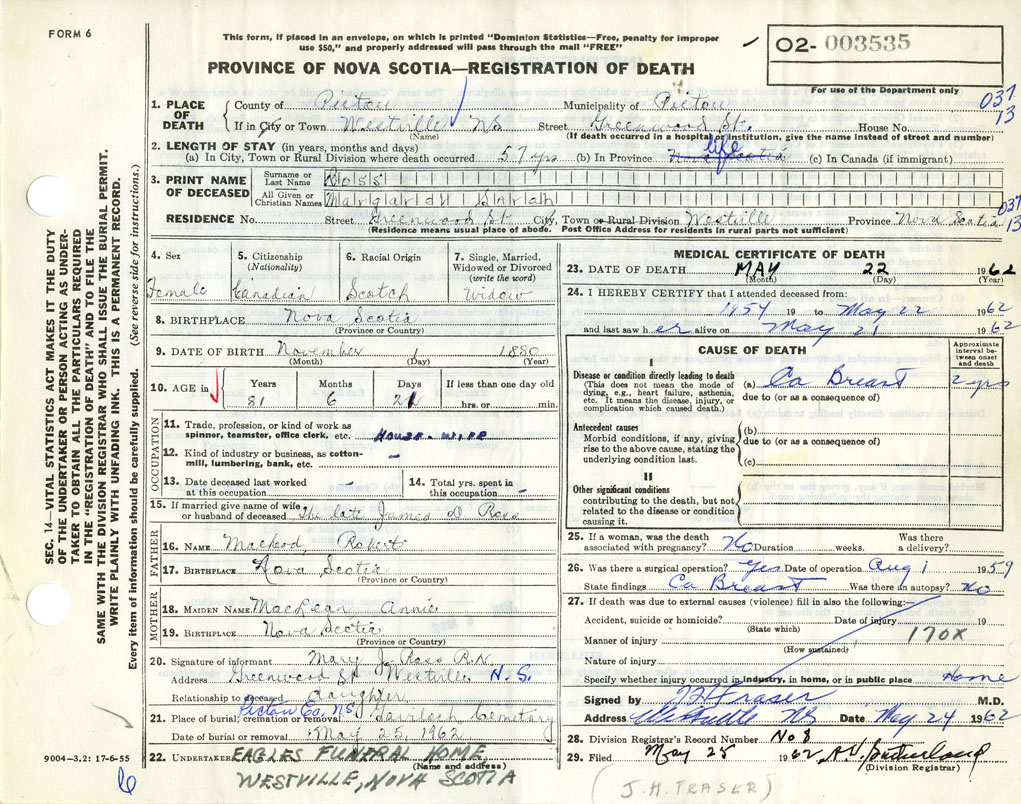 FORM 6
This form, if placed in an envelope, on which is printed "Dominion Statistics—Free, penalty for improper
use $50," and properly addressed will pass through the mail "FREE"
PROVINCE OF NOVA SCOTIA—REGISTRATION OF DEATH
02- 003535
For use of the Department only
037
13
1. PLACE OF DEATH
County of Pictou Municipality of Pictou
If in City or Town Westville NS Street Greenwood St. House No.
(Name) (If death occurred in a hospital or institution, give the name instead of street and number)
2. LENGTH OF STAY (in years, months and days)
(a) In City, Town or Rural Division where death occurred 57 yrs (b) In Province Nova Scotia life (c) In Canada (if immigrant)
3. PRINT NAME OF DECEASED
Surname or Last Name Ross
All Given or Christian Names Margaret Sarah
037
13
RESIDENCE No. Street Greenwood St City, Town or Rural Division Westville Province Nova Scotia
(Residence means usual place of abode. Post Office Address for residents in rural parts not sufficient)
4. Sex
Female
5. Citizenship
(Nationality)
Canadian
6. Racial Origin
Scotch
7. Single, Married,
Widowed or Divorced
(write the word)
Widow
8. BIRTHPLACE Nova Scotia
(Province or Country)
9. DATE OF BIRTH November 1 1880
(Month) (Day) (Year)
10. AGE in
Years Months Days If less than one day old
81 6 21 hrs. or min.
OCCUPATION
11. Trade, profession, or kind of work as
spinner, teamster, office clerk, etc. HOUSE-WIFE
12. Kind of industry or business, as cotton-
mill, lumbering, bank, etc. -
13. Date deceased last worked
at this occupation -
14. Total yrs. spent in
this occupation -
15. If married give name of wife
or husband of deceased The late James D. Ross
FATHER
16. NAME MacLeod, Robert
17. BIRTHPLACE Nova Scotia
(Province or Country)
MOTHER
18. MAIDEN NAME MacLean Annie
19. BIRTHPLACE Nova Scotia
(Province or Country)
20. Signature of informant Mary J. Ross R.N.
Address Greenwood St Westville N.S.
Relationship to deceased daughter
Pictou Co, NS
21. Place of burial, cremation or removal Gairloch Cemetary
Date of burial or removal May 25, 1962
22. UNDERTAKER EAGLES FUNERAL HOME,
(Name and address)
WESTVILLE, NOVA SCOTIA
MEDICAL CERTIFICATE OF DEATH
23. DATE OF DEATH MAY 22 1962
(Month) (Day) (Year)
24. I HEREBY CERTIFY that I attended deceased from:
19 to May 22 1962
and last saw her alive on May 21 1962
CAUSE OF DEATH
Approximate
interval be-
tween onset
and death
I
Disease or condition directly leading to death
(This does not mean the mode of
dying, e.g., heart failure, asthenia,
etc. It means the disease, injury, or
complication which caused death.)
(a) Ca Breast 2 yrs
due to (or as a consequence of)
Antecedent causes
Morbid conditions, if any, giving
rise to the above cause, stating the
underlying condition last.
(b)
due to (or as a consequence of)
(c)
II
Other significant conditions
contributing to the death, but not
related to the disease or condition
causing it.
25. If a woman, was the death
associated with pregnancy? No Duration weeks. Was there
a delivery?
26. Was there surgical operation? Yes Date of operation Aug 1 1959
State findings Ca Breast Was there an autopsy? No
27. If death was due to external causes (violence) fill in also the following:—
Accident, suicide or homicide? Date of injury 19
(State which)
Manner of injury 170X
(How sustained)
Nature of injury
Specify whether injury occurred in industry, in home, or in public place Home
Signed by J H Fraser M.D.
Address Westville NS Date May 24 1962
28. Division Registrar's Record Number No 8
29. Filed May 25 1962
(Division Registrar)
(J. H. FRASER)
9004—3.2: 17-6-55
SEC. 14—VITAL STATISTICS ACT MAKES IT THE DUTY
OF THE UNDERTAKER OR PERSON ACTING AS UNDER-
TAKER TO OBTAIN ALL THE PARTICULARS REQUIRED
IN THE "REGISTRATION OF DEATH" AND TO FILE THE
SAME WITH THE DIVISION REGISTRAR WHO SHALL ISSUE THE BURIAL PERMIT.
WRITE PLAINLY WITH UNFADING INK. THIS IS A PERMANENT RECORD.
Every item of information should be carefully supplied. (See reverse side for instructions.)